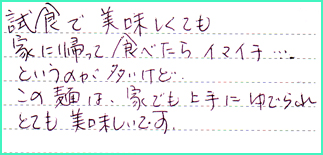 試食で美味しくても
家に帰って食べたらイマイチ…
というのが多いけど
この麺は、家でも上手にゆでられ
とても美味しいです。